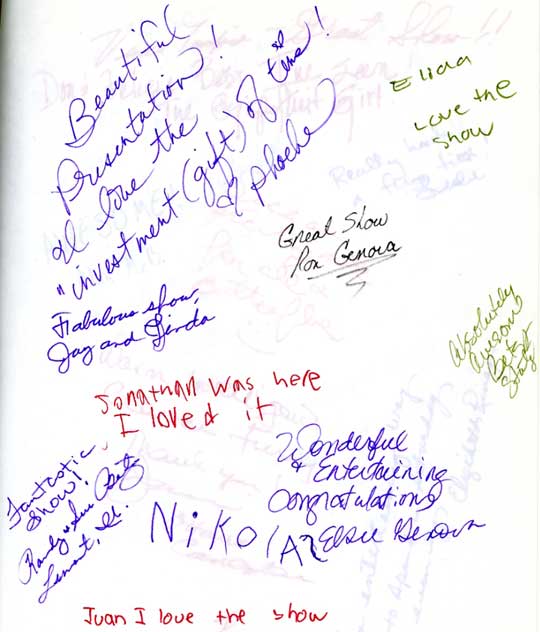 Beautiful
Presentation!
I love the
"investment (gift) of time!
Phoebe
Eliaa
Love the
show
Great Show
Ron Genova
Fabulous show,
Jay and Linda
Absolutely
awesome
Jonathan was here
I loved it
Fantastic
Show!
Randy & Sue
Lemont, Il.
Wonderful
& Entertaining
Congratulations
Elsie Genova
Niko
Juan I love the show